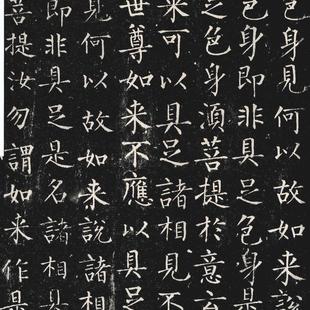 色身見何以故如来說
色身即非具足色身是
足色身湏菩提於意云
来可以具足諸相見不
世尊如来不應以具足
見何以故如来說諸相
即非具足是名諸相具
菩提汝勿謂如来作是